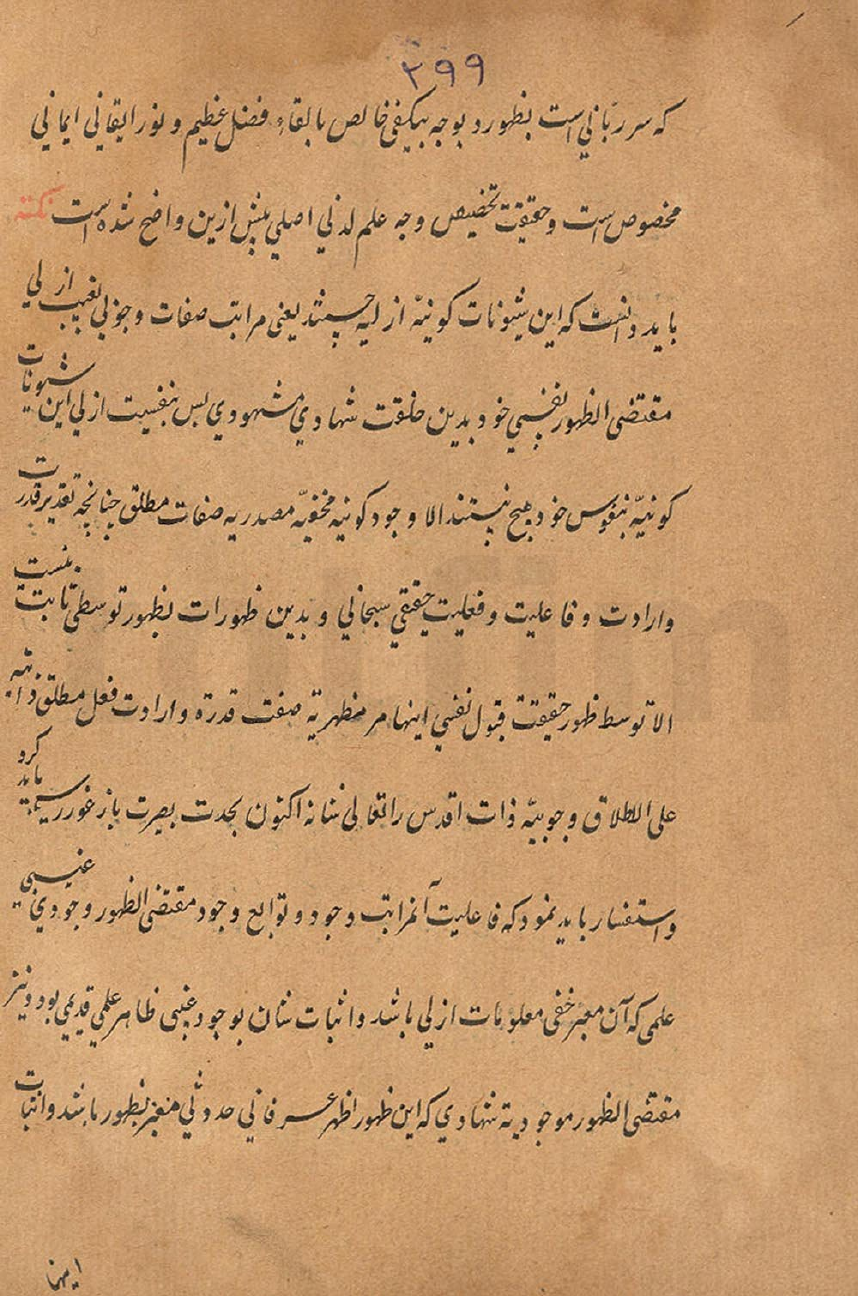 ۲۹۹
که سر ربانی است بظهور و بوجه بیکیفی خالص بابقاء فضل عظیم و نور ایقانی ایمانی
مخصوص است و حقیقت تخصیص وجه علم لدنی اصلی پیش ازین واضح شده است نکته
باید دانست که این شیونات کونیه ازلیه چیستند یعنی مراتب صفات وجوبی بغیب ازلی
مقتضی الظهور بنفسی خود بدین خلقت شهادی مشهودی بس بنفسیت ازلی این شیونات
کونیه بنفوس خود هیچ نیستند الا وجود کونیه مخفیه مصدریه صفات مطلق چنانچه تقدیر قدرت
وارادت و فاعلیت و فعلیت حقیقی سبحانی و بدین ظهورات بظهور توسطی ثابت نیست
الا توسط ظهور حقیقت قبول نفسی اینها مر مظهریة صفت قدرة وارادت فعل مطلق ذاتیه
علی الاطلاق وجوبیه ذات اقدس را تعالی شانه اکنون بحدت بصیرت باز غور رسیده باید کرو
واستفسار باید نمود که فاعلیت آنمراتب وجود و توابع وجود مقتضی الظهور وجودی غیبی
علمی که آن معبر خفی معلومات ازلی باشد واثبات شان بوجود غیبی ظاهر علمی قدیمی بود ونیز
مقتضی الظهور موجودیة شهادی که این ظهور اظهر عرفانی حدوثی معبر بظهور باشد واثبات
اینها